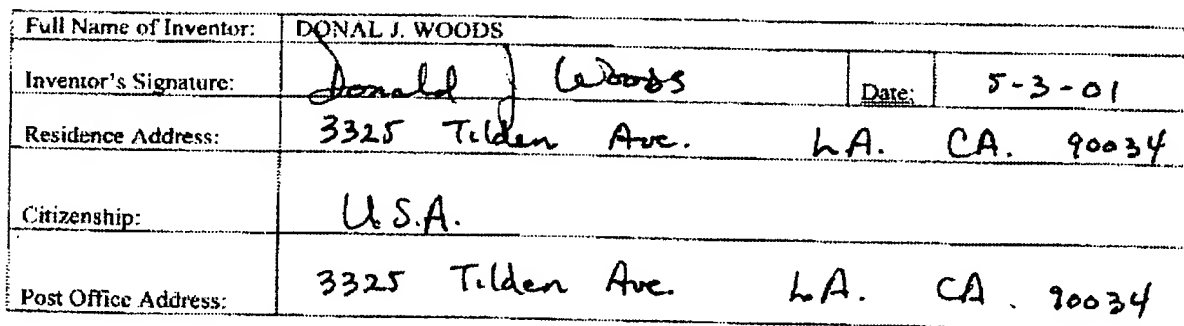 Full Name of Inventor: DONAL J. WOODS
Inventor's Signature: Donald J Woods Date: 5-3-01
Residence Address: 3325 Tilden Ave. LA. CA. 90034
Citizenship: U.S.A.
Post Office Address: 3325 Tilden Ave. LA. CA. 90034